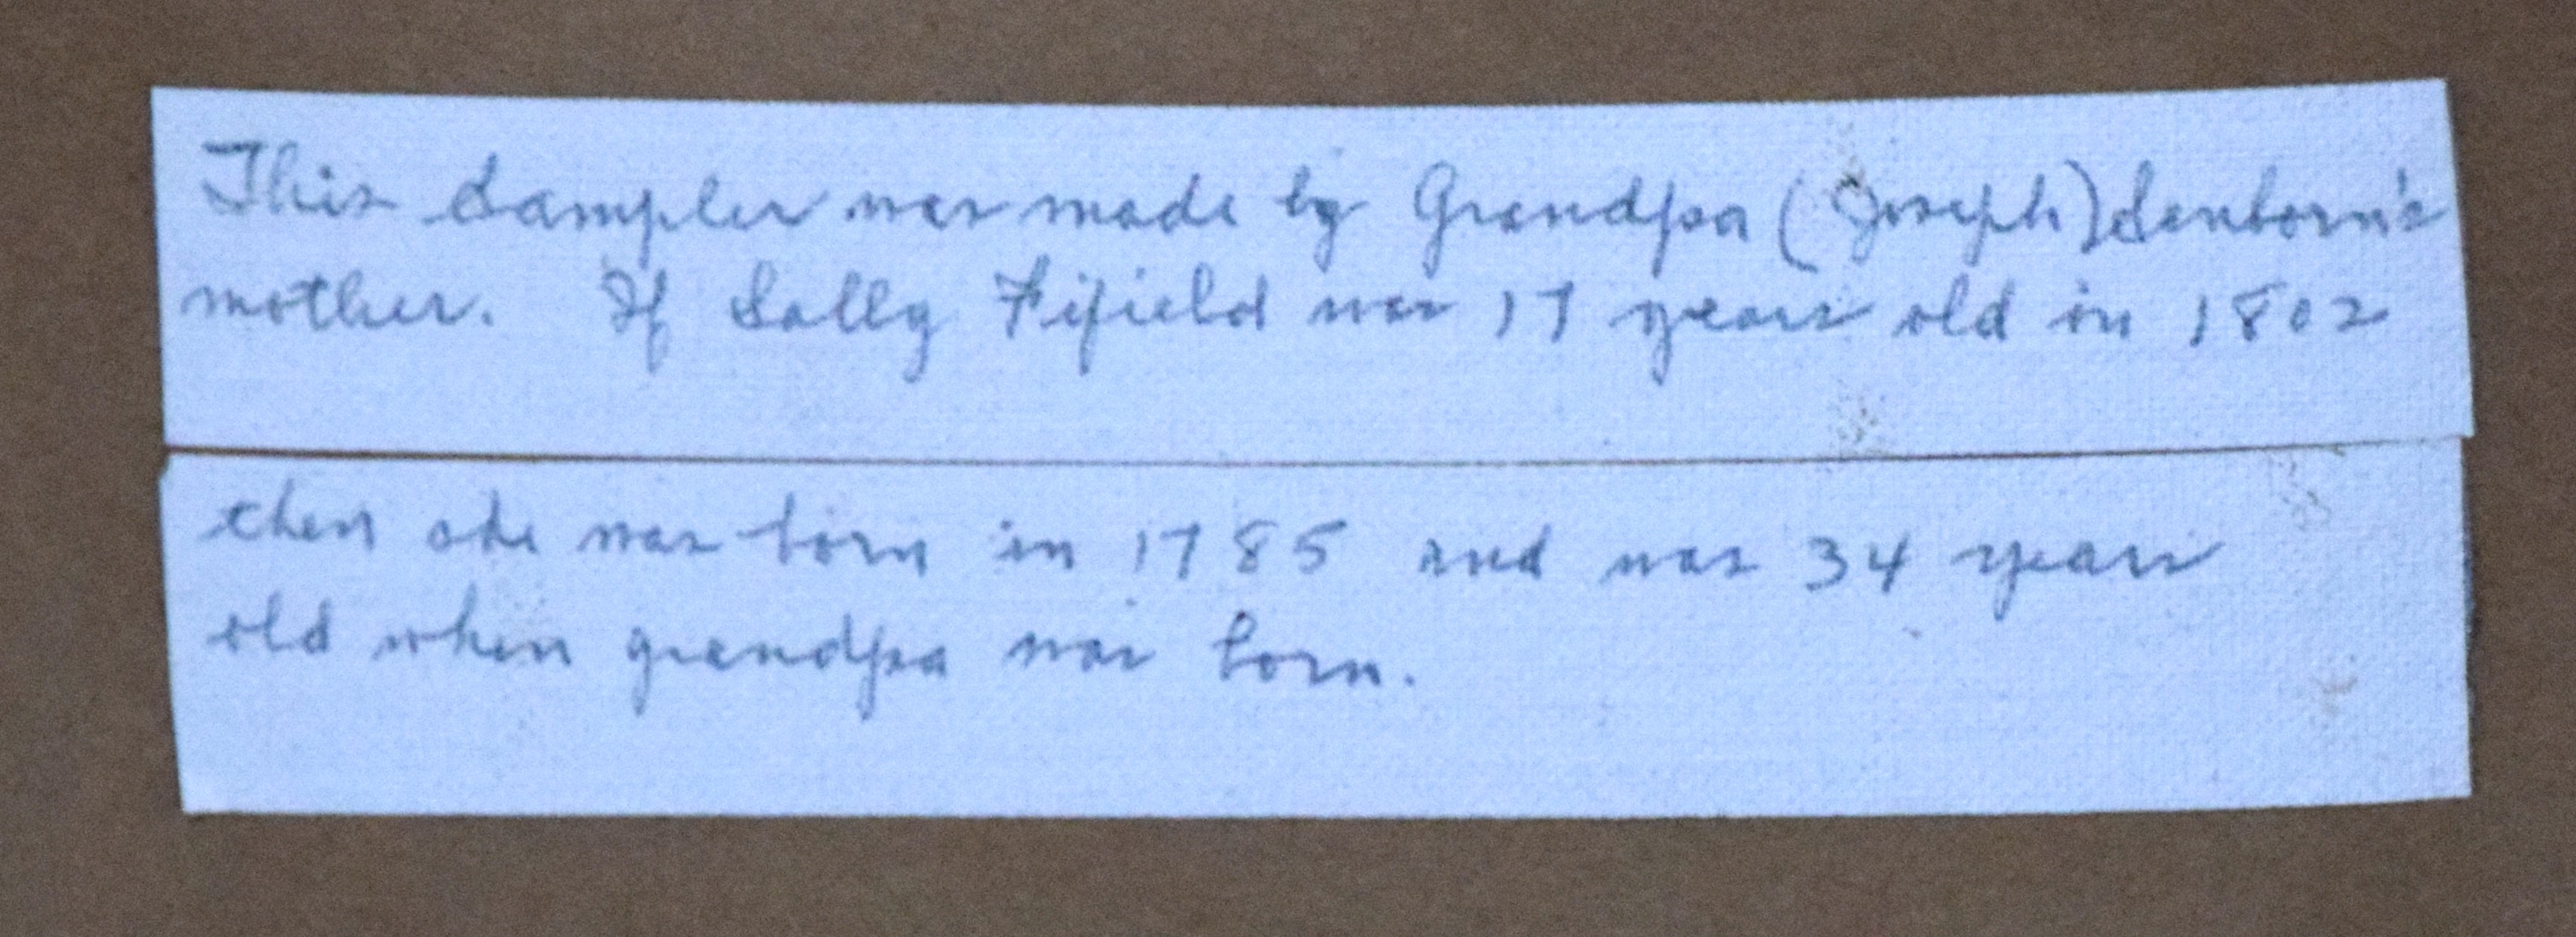 This Sampler was made by Grandpa (Joseph) Sanborn's
mother. If Sally Fifield was 17 years old in 1802
then she was born in 1785 and was 34 years
old when grandpa was born.